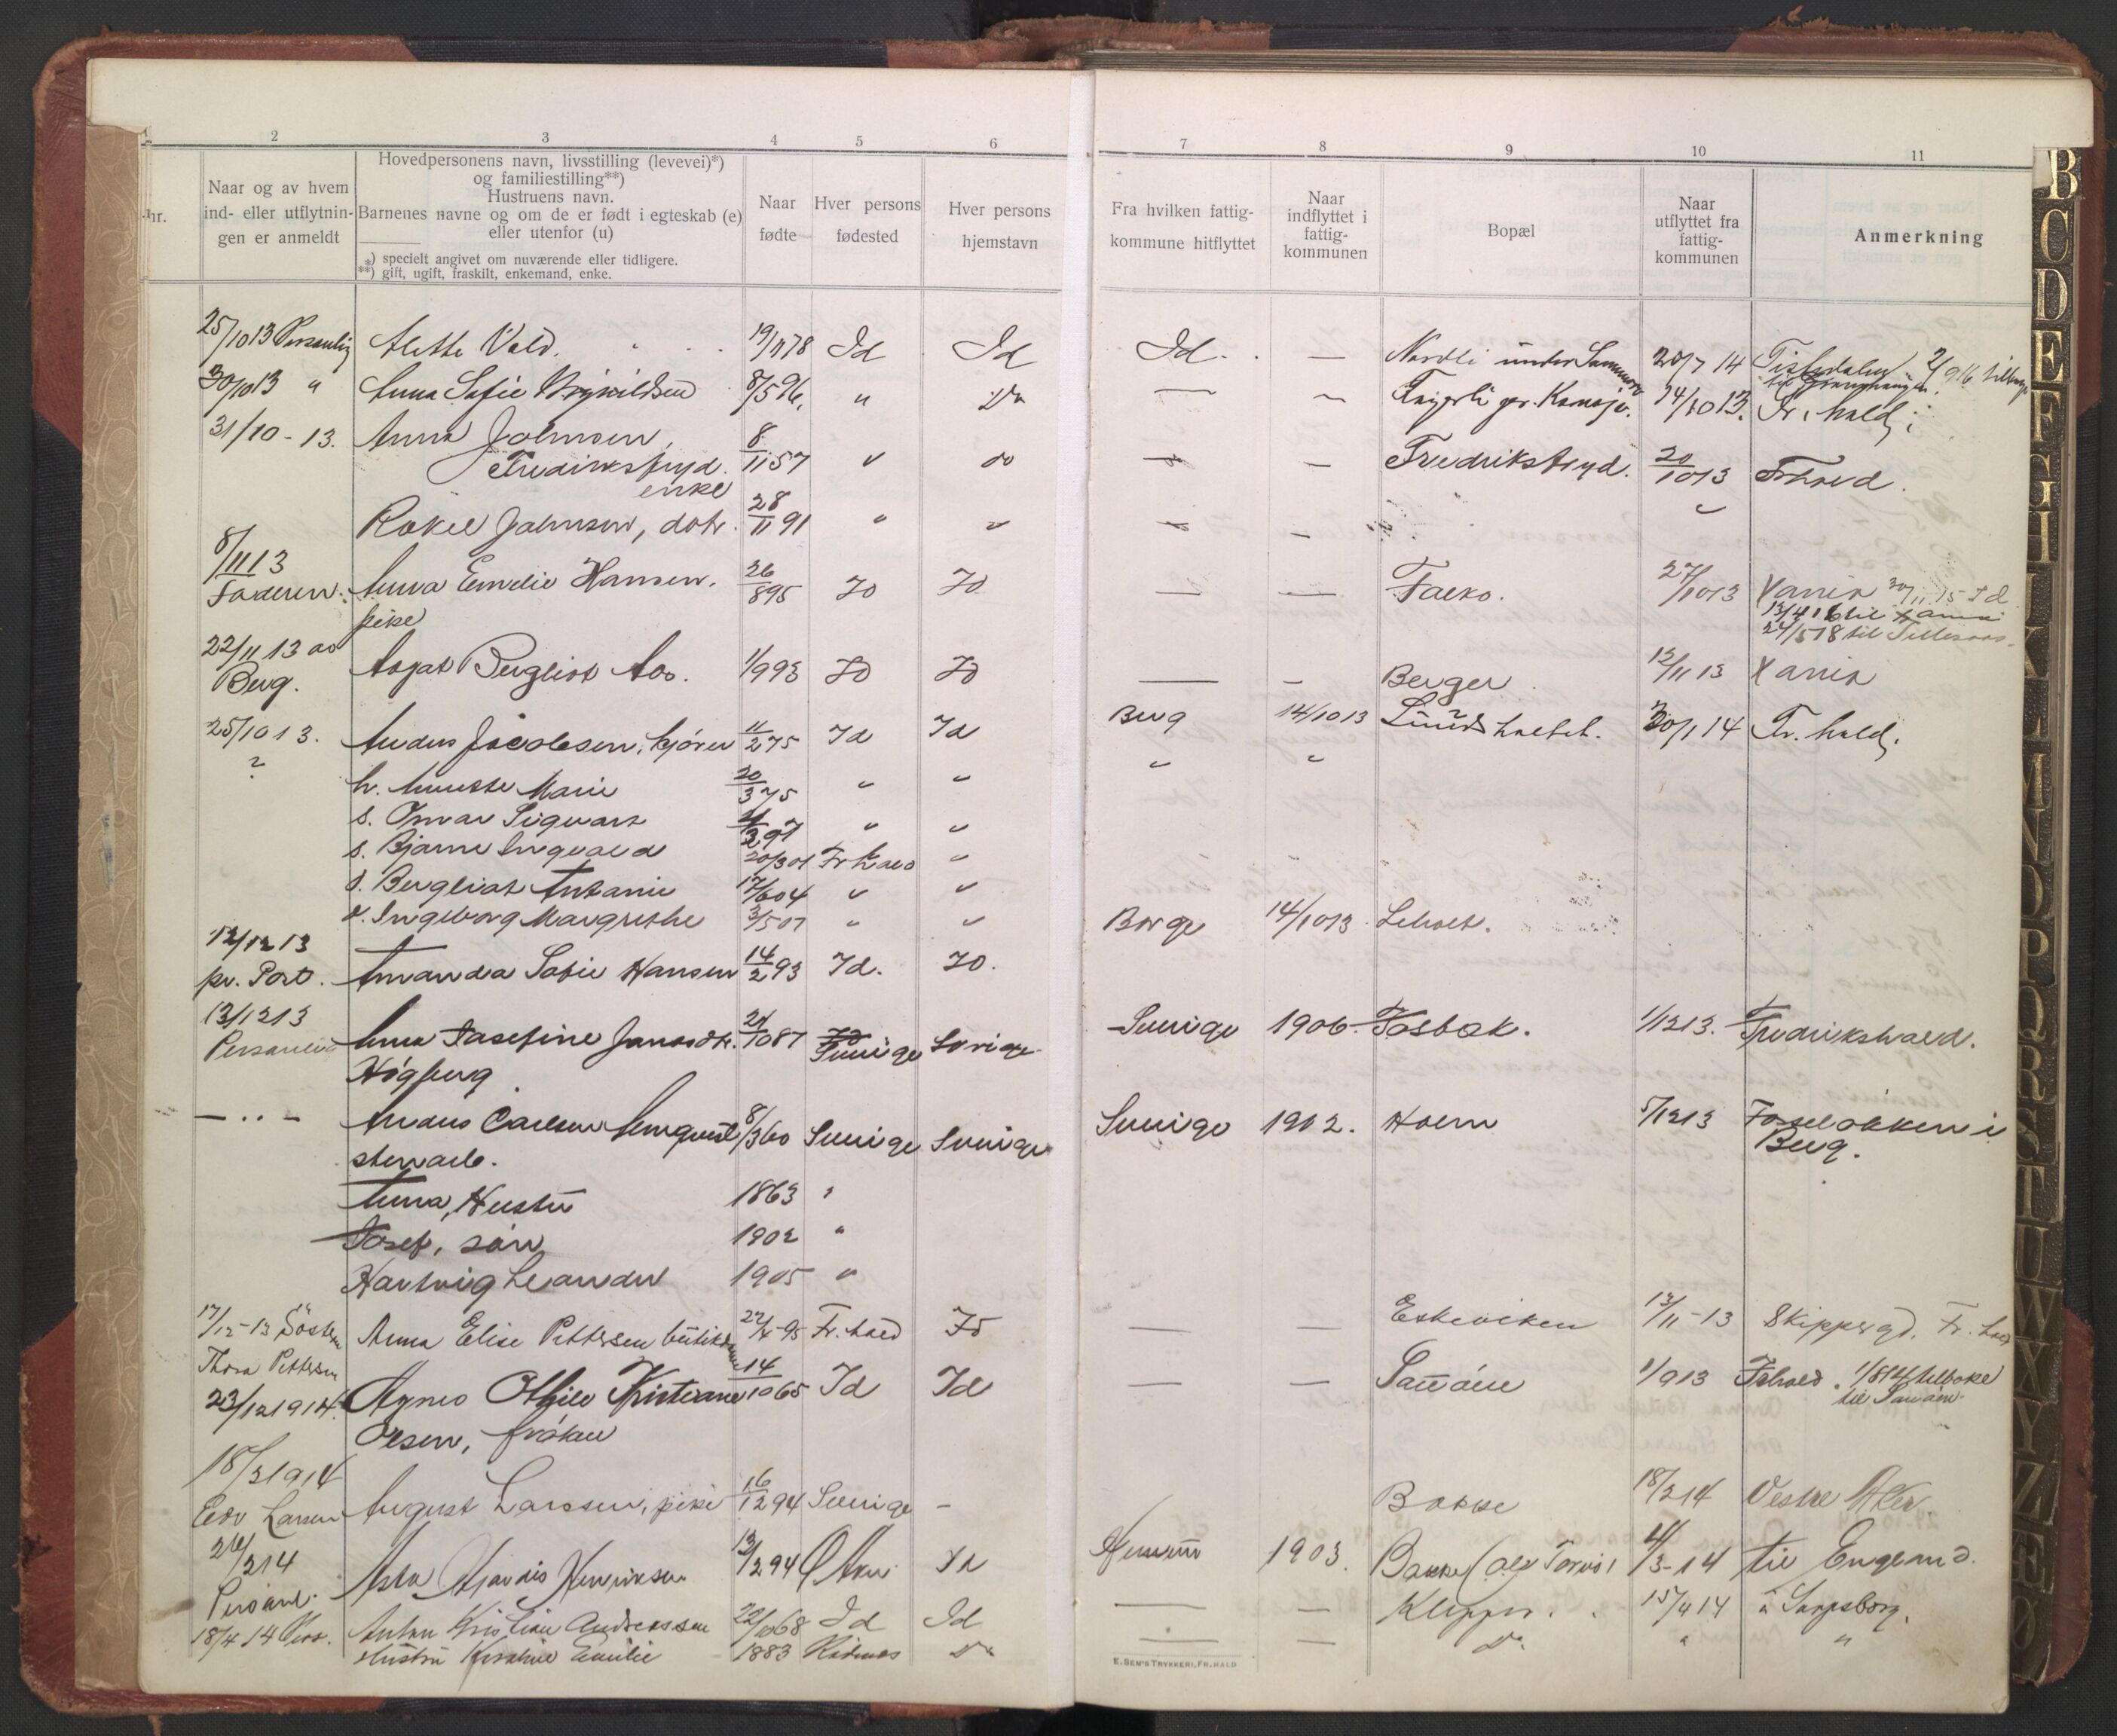 2 3 4 5 6
7 8 9 10 11
nr.
Naar og av hvem
ind- eller utflytnin-
gen er anmeldt
Hovedpersonens navn, livsstilling (levevei)*)
og familiestilling**)
Hustruens navn.
Barnenes navne og om de er født i egteskab (e)
eller utenfor (u)
*) specielt angivet om nuværende eller tidligere.
**) gift, ugift, fraskilt, enkemand, enke.
Naar
fødte
Hver persons
fødested
Hver persons
hjemstavn
Fra hvilken fattig-
kommune hitflyttet
Naar
indflyttet i
fattig-
kommunen
Bopæl
Naar
utflyttet fra
fattig-
kommunen
Anmerkning
25/10 13 Personlig Alette Vold. 19/11 78 Id Id Id. — Nordli under 20/7 14 Tistedalen 2/9 16 tilbage
30/10 13 " Anna Sofie 8/5 96. " Do — 14/10 13. Fr.hald
31/10 - 13. Anna Johnsen, 8/11 57 " do — — Fredriksfryd. 20/10 13 Frhald.
Fredriksfryd.
enke
Rakel Johnsen, dotr. 28/11 91 " " — — "
8/11 13
Faderen. Anna Emelie Hansen. 26/8 95 Id Id — — Falko. 27/10 13 Varien 30/11 15 Id
pike
13/4 16 til
24/5 18 til
22/11 13 av
Berg. Aagat Bergliot Aas. 1/9 93 Id Id — — Berger 12/11 13 Varien
25/10 13. Anders Jacobsen, kjører 11/2 75 Id Id Berg 14/10 13 30/1 14 Fr. hald.
h. Annette Marie 20/3 75 " " " "
s. Omar Sigvart 4/2 97 " "
s. Bjarne Ingvald 20/3 01 Fr hald "
d. Bergliot Antonie 17/6 04 " "
d. Ingeborg Margrethe 3/5 07 " "
12/12 13
pr. Post. Amanda Sofie Hansen 14/2 93 Id. Id. Borge 14/10 13 Leholt.
13/12 13
Personlig Anna Josefine Jonasdtr. 24/10 87 Sverige Sverige Sverige 1906. Fosbæk. 1/12 13. Fredrikshald.
Högberg
— " — Anders Carlsen Almquist 8/3 60 Sverige Sverige Sverige 1902. Holm 5/12 13 Fosseløkken i
stenarb. Berg.
Anna, Hustru 1863 "
Josef, søn 1902 "
Hartvig Leander 1905 "
17/12-13 Søster Anna Elise Pettersen 22/4-95 Fr. hald Id — — Eskeviken 13/11-13 Skippergd. Fr. hald
Thora Pettersen
23/12 1914. Agnes Othile Kristiane 14/10 65 Id Id — — Sauøen 1/9 13 Frhald. 1/8 14 tilbake
til Sauøen.
Olsen, frøken
18/2 1914
Edv Larsen August Larssen, pike 16/12 94 Sverige — Bakke 18/2 14 Vestre Aker
24/2 14
Personl. Asta Hjørdis Henriksen 13/2 94 Ø Aker Id 1903. Bakke 4/3-14 til England.
18/4 14 Pers. Anton Kristian Andreassen 22/10 68 Id Id — — Klepper. 15/4 14 " Sarpsborg.
Hustru Emilie 1883 Do — — Do " "
E. SEM'S TRYKKERI, FR.HALD
B
C
D
E
F
G
I
K
L
M
N
O
P
Q
R
S
T
U
W
X
Y
Z
Æ
Ø